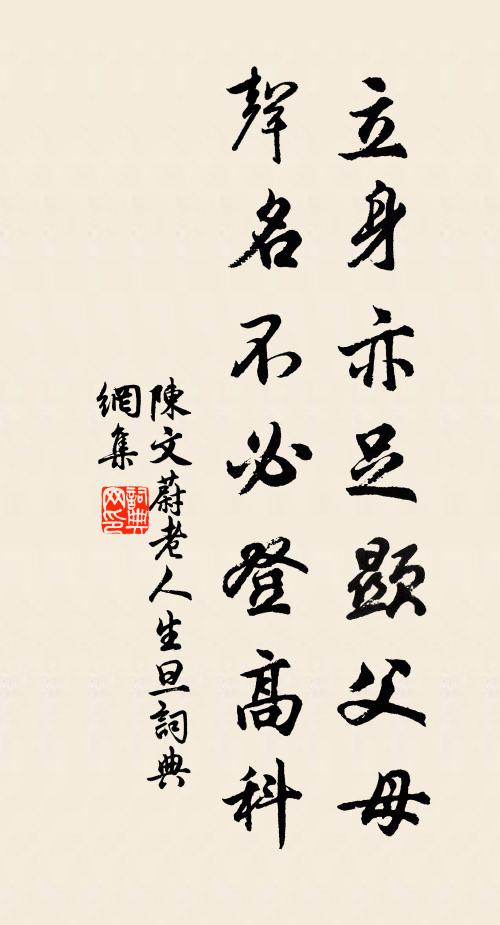 立身亦足顯父母
聲名不必登高科
陳文蔚老人生旦詞典
網集
詞典網印